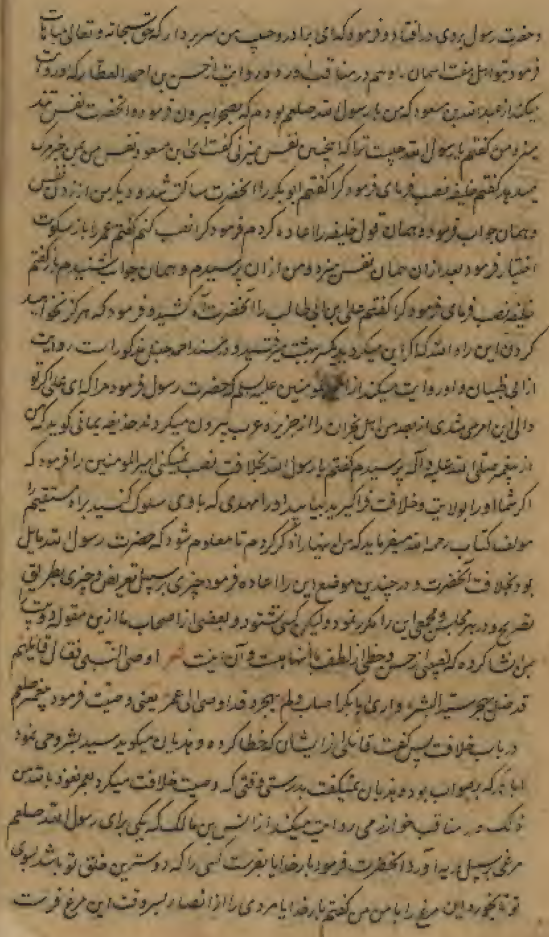 و حضرت رسول بروی در افتاد و فرمود که ای برادر و حبیب من سر بردار که حق سبحانه و تعالی مباهات
فرمود بتو اهل هفت آسمان و هم در مناقب آورده روایت از حسن بن احمد العطار که او روایت
میکند از عبدالله بن مسعود که من با رسول الله صلعم بودم که بصحرا بیرون فرمود و آنحضرت نفس تند
میزد من گفتم یا رسول الله چیست ترا که اینچنین نفس میزنی گفت ای بن مسعود نفس من بمن خبر مرگ
میدهد گفتم خلیفه نصب فرمای فرمود کرا گفتم ابوبکر را آنحضرت ساکت شد و دیگر من از زدن نفس
و همان جواب فرمود و همان قول خلیفه را اعاده کردم فرمود کرا نصب کنم گفتم عمر را باز سکوت
اختیار فرمود بعد از آن همان نفس میزد و من از آن پرسیدم و همان جواب شنیدم باز گفتم
خلیفه نصب فرمای فرمود کرا گفتم علی بن ابی طالب را آنحضرت آه کشید و فرمود که هرگز نخواهید
کردن این را و الله که اگر این میکردید یکسر ببهشت میرفتید و در مسند احمد حنبل مذکور است روایت
از ابی ظبیان و او روایت میکند از امیرالمومنین علیه السلم که حضرت رسول فرمود مرا که ای علی اگر تو
والی این امر می شدی از بعد من اهل نجران را از جزیره عرب بیرون میکردند حذیفه یمانی گوید که من
از پیغمبر صلی الله علیه و آله پرسیدم گفتم یا رسول الله بخلافت نصب نمیکنی امیرالمومنین را فرمود که
اگر شما او را بولایت و خلافت فراگیرید بیابید او را مهدی که با وی سلوک کنید براه مستقیم
مولف کتاب رحمه الله میفرماید که من بنهایة اذکر کردم تا معلوم شود که حضرت رسول الله مایل
بود بخلافت آنحضرت و در چندین موضع این را اعاده فرمود چیزی بر سبیل تعریض و چیزی بطریق
تصریح و در هر مجلس و مجمعی این را مکرر نمود ولیکن کسی نشنود و بعضی از اصحاب ما ازین مقوله دو بیت
انشا کرده که نصیبی از حسن و حظی از لطف با آنها هست و آن اینست شعر اوصی النبی فقال قایلهم
قد ضل یهجر سید البشر و اری ابا بکر اصاب ولم یهجر و قد اوصی الی عمر یعنی وصیت فرمود پیغمبر صلعم
در باب خلافت پس گفت قائلی از ایشان که خطا کرده و هذیان میگوید سید بشر و حی نمود
ابا بکر که بر صواب بود و هذیان نمیگفت بدرستی وقتی که وصیت خلافت میکرد بعمر نعوذ بالله من
ذلک و در مناقب خوارزمی روایت میکند از انس بن مالک که یکی برای رسول الله صلعم
مرغی بسبیل هدیه آورد آنحضرت فرمود بار خدایا بفرست کسی را که دوسترین خلق تو باشد بسوی
تو تا بخورد این مرغ را با من من گفتم بار خدایا مردی را از انصار بسر وقت این مرغ فرست